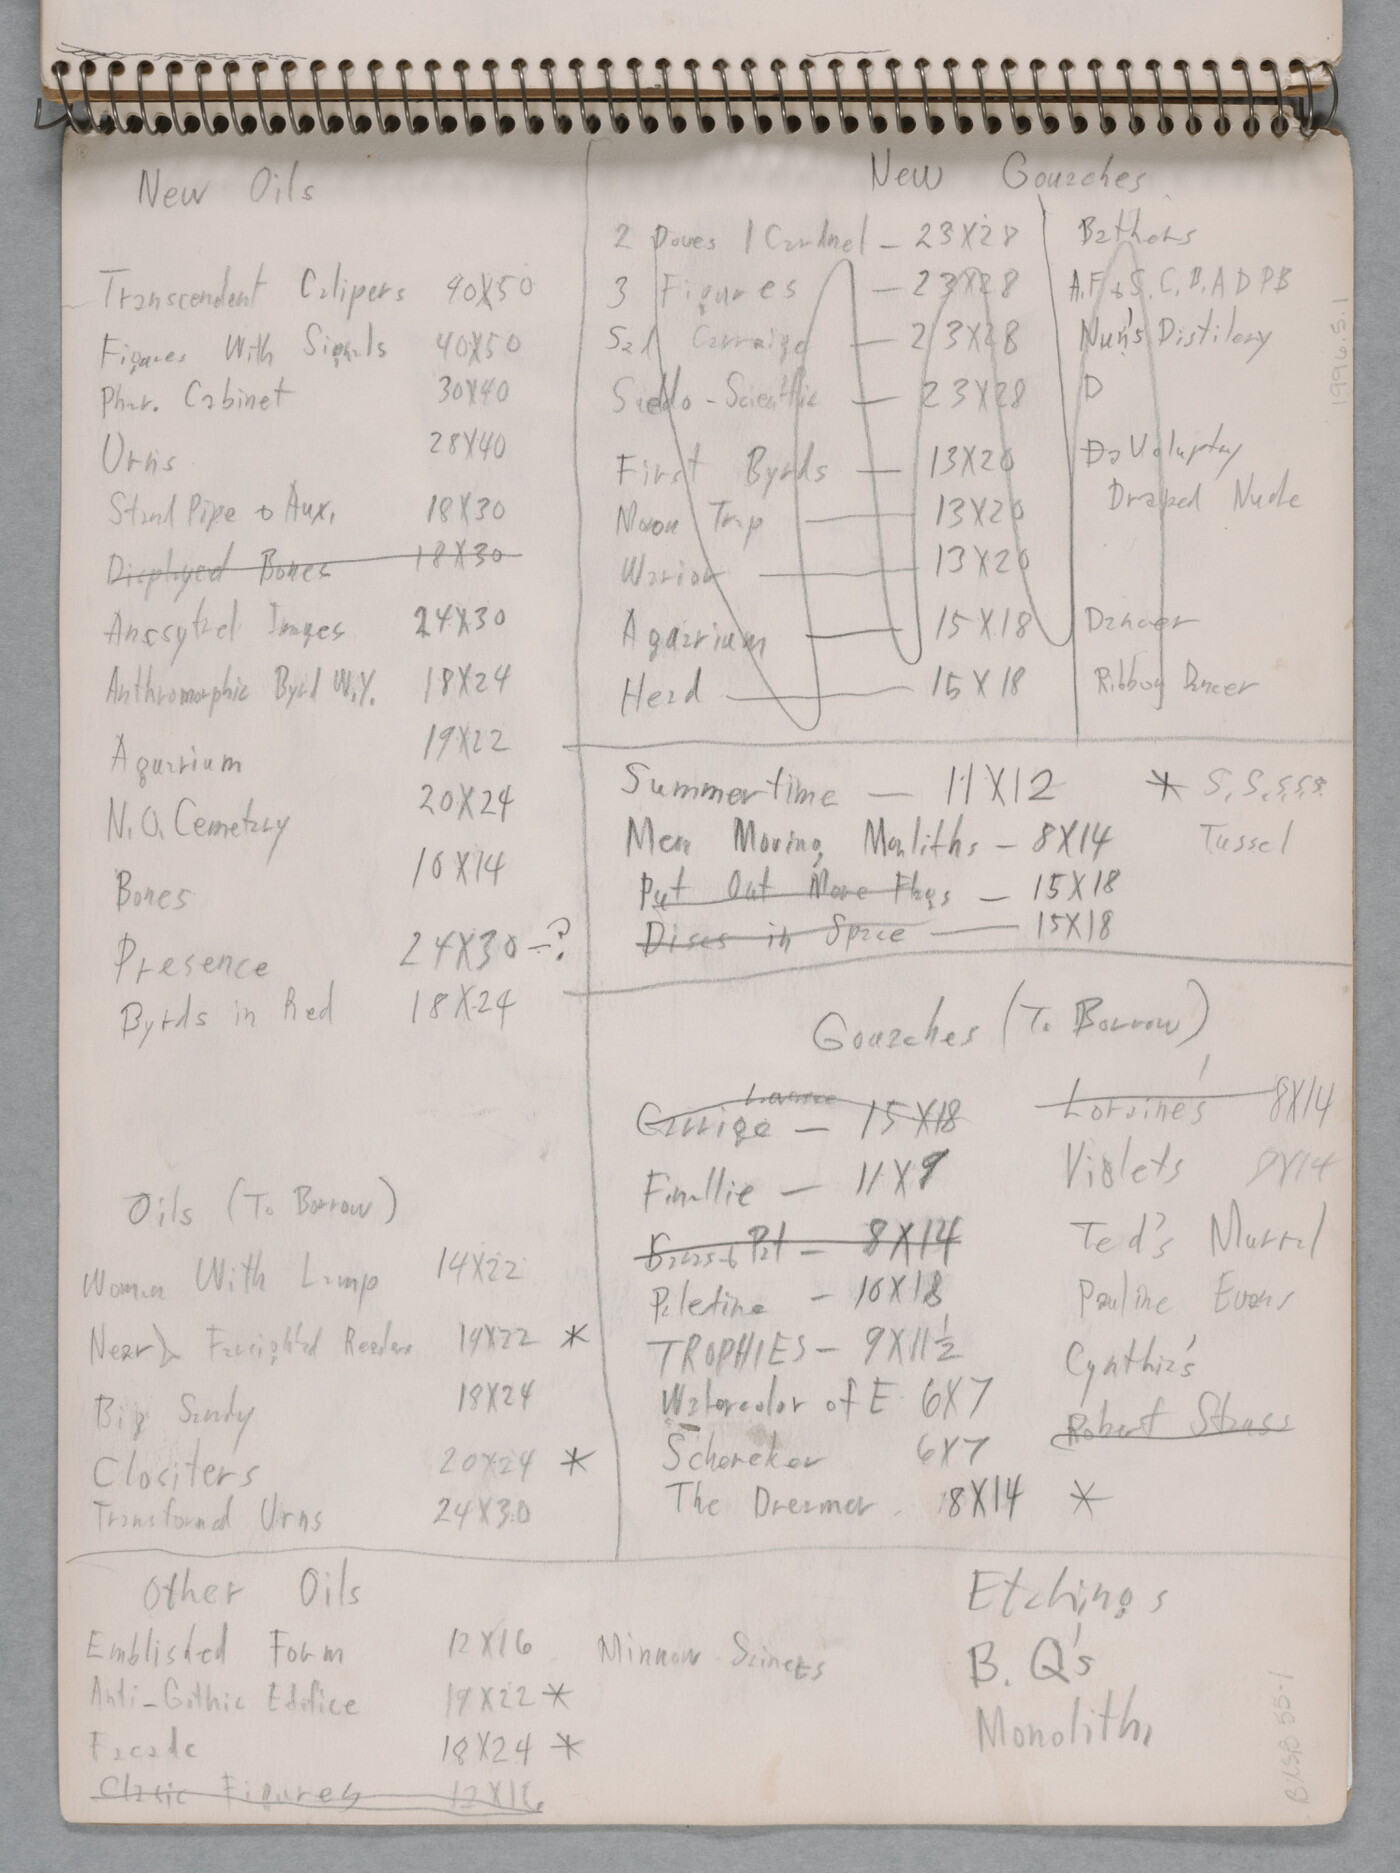 New Oils
Transcendent Calipers 40X50
Figures With Signals 40X50
Phar. Cabinet 30X40
Urns 28X40
Stand Pipe & Aux. 18X30
Displayed Bones 18X30
Ancsytral Images 24X30
Anthromorphic Byrd W.Y. 18X24
Aquarium 19X22
N.O. Cemetary 20X24
Bones 10X14
Presence 24X30-?
Byrds in Red 18X24
Oils (To Borrow)
Woman With Lamp 14X22
Near & Farsighted Readers 19X22 *
Big Sandy 18X24
Clositers 20X24 *
Transformed Urns 24X30
Other Oils
Emblished Form 12X16
Anti-Gothic Edifice 19X22 *
Facade 18X24 *
Clasic Figures 12X16
Minnow Seiners
New Gouaches
2 Doves 1 Cardnel - 23X28
3 Figures - 23X28
Sal Carraige - 23X28
Suedo-Scientific - 23X28
First Byrds - 13X20
Moon Trap - 13X20
Warior - 13X20
Aquarium - 15X18
Head - 15X18
Bathers
A.F. & S.C.B.A D P B
Nun's Distilery
D
Da Voluptay
Draped Nude
Dancer
Ribbon Dancer
Summertime - 11X12
Men Moving Monliths - 8X14
Put Out More Flags - 15X18
Discs in Space - 15X18
* S,S,S,S,S.
Tussel
Gouaches (To Borrow)
Garrige - 15X18
Finallie - 11X9
8X14
Paletine - 10X18
TROPHIES - 9X11½
Watercolor of E. 6X7
Schereker 6X7
The Dreamer. 8X14 *
Loraine's 8X14
Violets 9X14
Ted's Murral
Pauline Evans
Cynthia's
Robert Strass
Etchings
B. Q's
Monolith
1996.5.1
BKSB 55-1